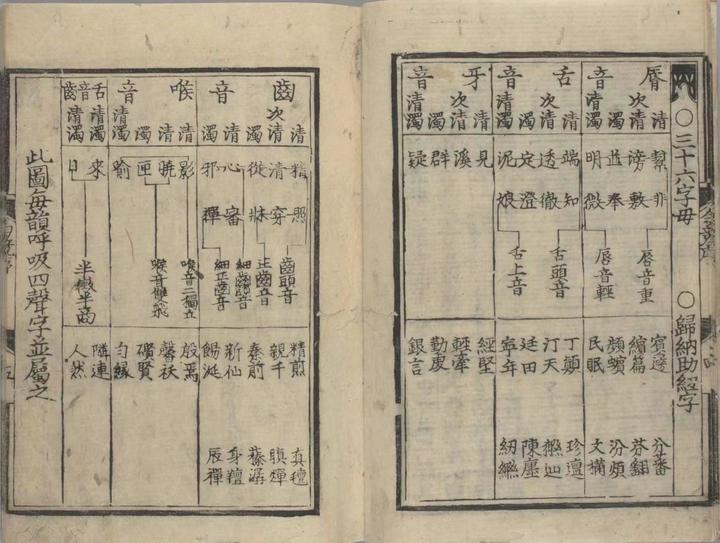 ○三十六字母 ○歸納助紐字
脣 清 幫非 脣音重 賓邊 分蕃
次清 滂敷 繽篇 芬翻
濁 並奉 脣音輕 頻蠙 汾煩
音 清濁 明微 民眠 文樠
舌 清 端知 舌頭音 丁顛 珍邅
次清 透徹 汀天 辿
濁 定澄 舌上音 廷田 陳廛
音 清濁 泥娘 寧年 紉
牙 清 見 經堅
次清 溪 輕牽
濁 群 勤虔
音 清濁 疑 銀言
齒 清 精照 齒頭音 精煎 真氈
次清 清穿 正齒音 親千 瞋燀
濁 從牀 細齒頭音 秦前 蓁潺
音 清 心審 細正齒音 新仙 身羶
濁 邪禪 餳涎 辰禪
喉 清 影 喉音二獨立 殷焉
清 曉 喉音雙飛 馨祆
濁 匣 礥賢
音 清濁 喻 勻緣
舌音 清濁 來 半徵半商 隣連
齒 清濁 日 人然
此圖每韻呼吸四聲字並屬之